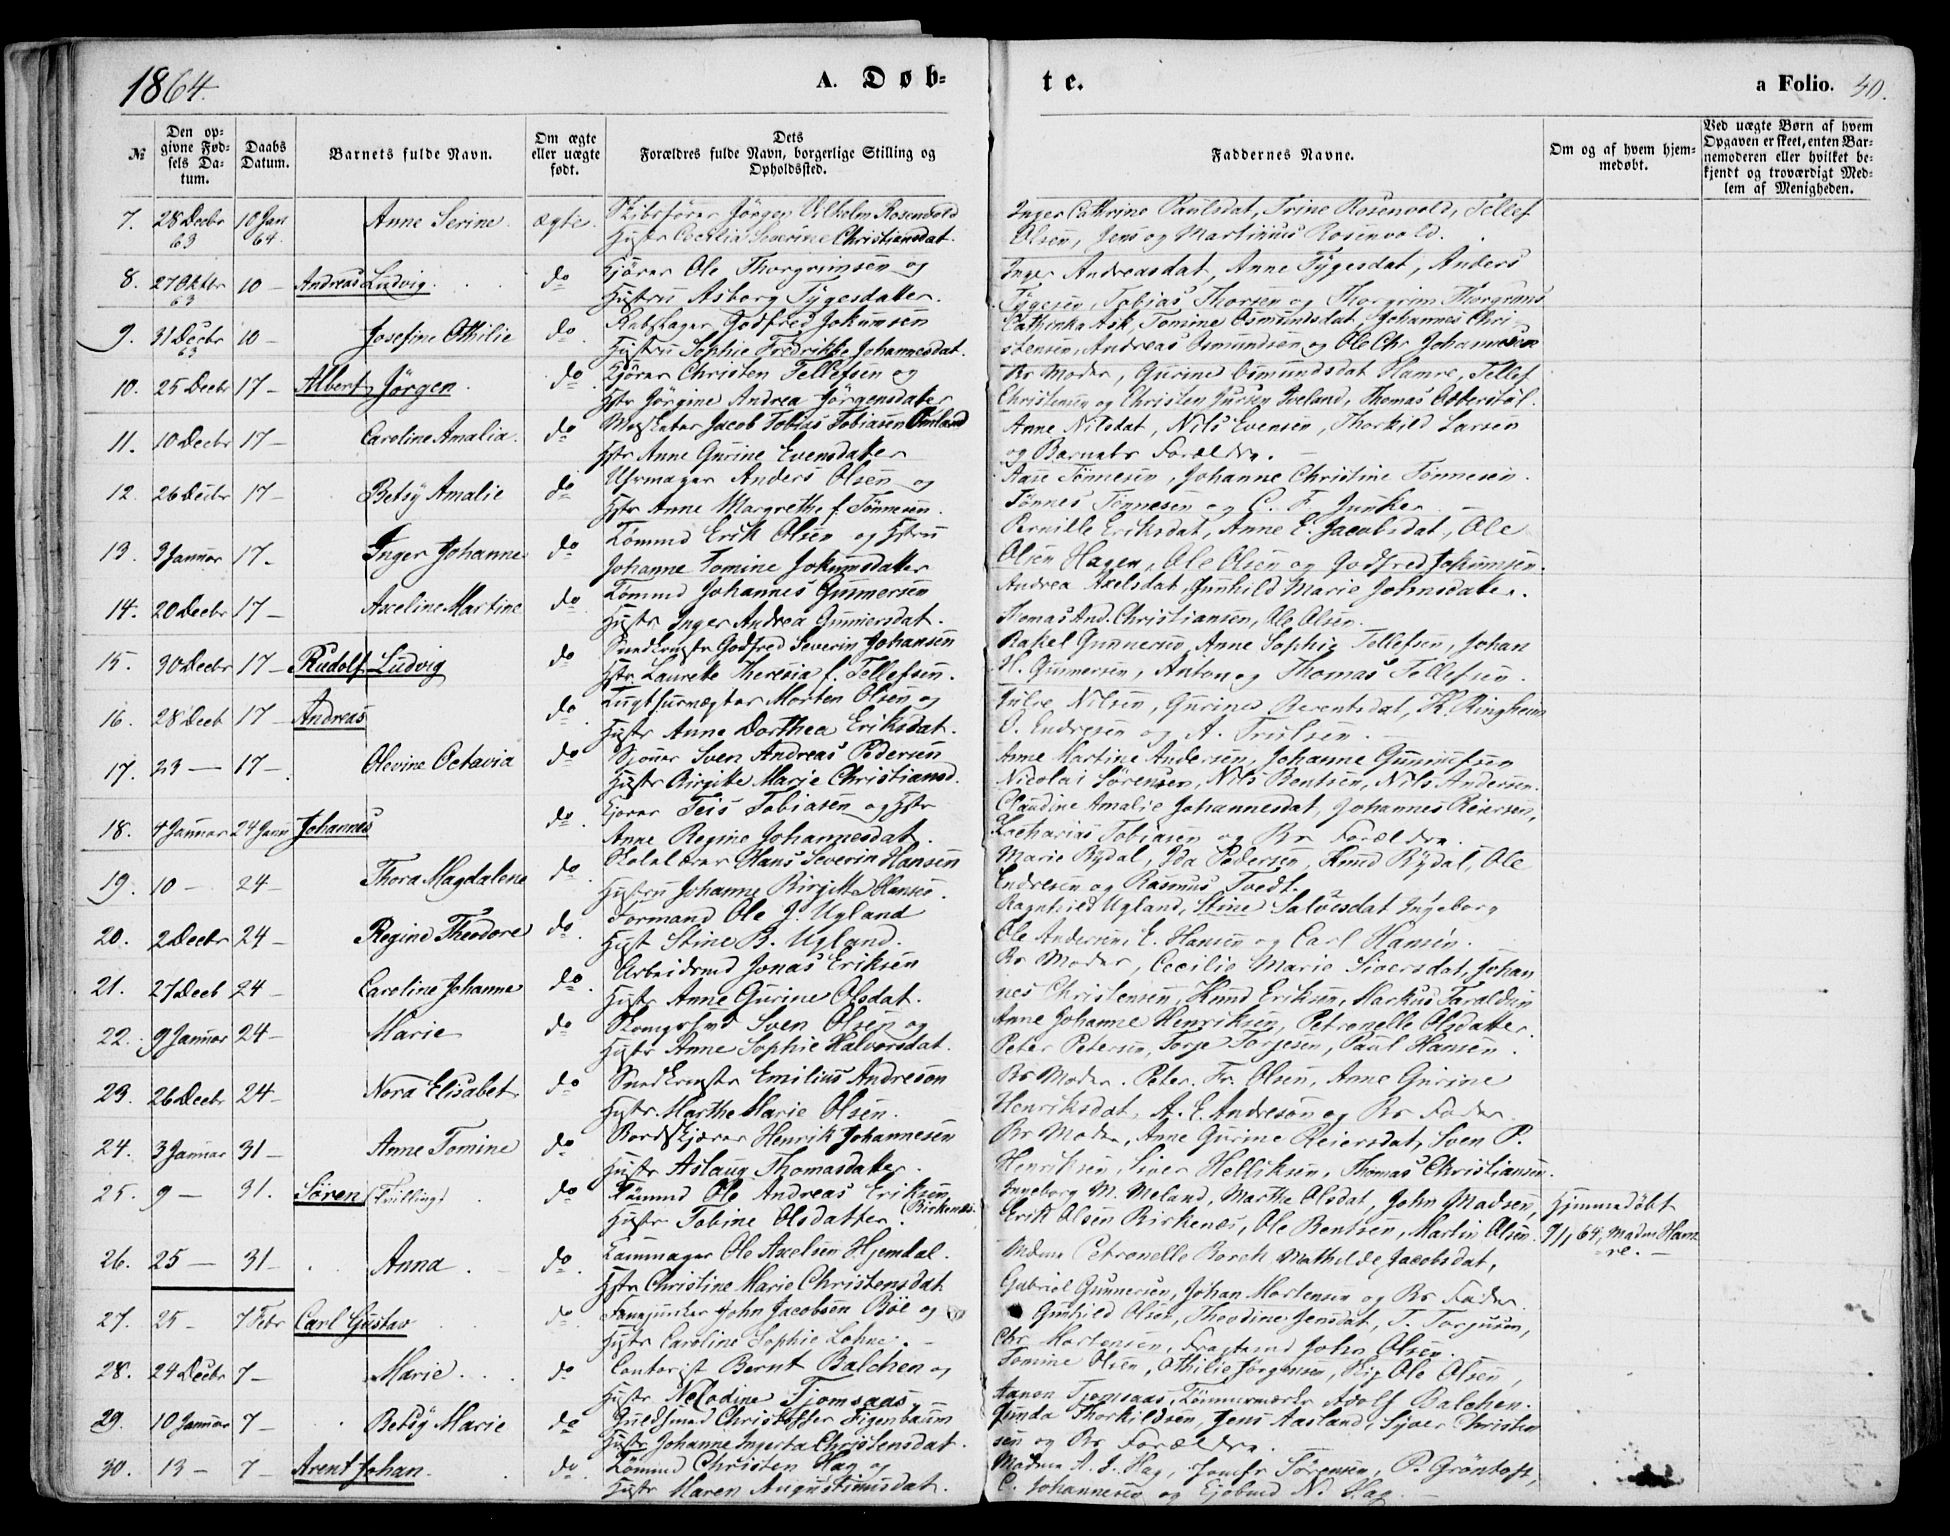 1864.
A. Døb-
te.
a Folio. 40.
№
Den opgivne Fødsels Datum.
Daabs Datum.
Barnets fulde Navn.
Om ægte eller uægte født.
Dets Forældres fulde Navn, borgerlige Stilling og Opholdssted.
Faddernes Navne.
Om og af hvem hjemmedøbt.
Ved uægte Børn af hvem Opgaven er skeet, enten Barnemoderen eller hvilket bekjendt og troværdigt Medlem af Menigheden.
7. 28 Decbr 63 10 Jan 64. Anne Serine. ægte. Skibsfører Jörgen Vilhelm Rosenvold
Hustr Cecilia Severine Christiansdat.
Inger Cathrine Paulsdat, Trine Rosenvold, Tellef
Olsen, Jens og Martinius Rosenvold.
8. 27 Oktbr 63 10 — Andreas Ludvig. do Kjörer Ole Thorgrimsen og
Hustru Asborg Tygesdatter.
Inger Andreasdat, Anne Tygesdat, Anders
Tygesen, Tobias Thorsen og Thorgrim Thorgrims
9. 31 Decbr 63 10 — Josefine Othilie do Rebslager Godfred Jokumsen
Hustru Sophie Fredrikke Johannesdat.
Cathinka Ask, Tomine Osmundsdat, Johannes Chri
stensen, Andreas Osmundsen og Ole Chr Johannesen
10. 25 Decbr 17 — Albert Jörgen do Kjörer Christen Tellefsen og
Hstr Jörgine Andrea Jörgensdatter
Bs Moder, Gurine Osmundsdat Hamre, Tellef
Christensen og Christen Jursen Iveland, Thomas Ottersböl.
11. 10 Decbr 17 — Caroline Amalia. do Jacob Tobias Tobiasen Omland
Hstr Anne Gurine Evensdatter
Anne Nilsdat, Nils Evensen, Thorkild Larsen
og Barnets Forældre. —
12. 26 Decbr 17 — Betsy Amalie do Uhrmager Anders Olsen og
Hstr Anne Margrethe f. Tönnesen.
Aase Tönnesen, Johanne Christine Tönnesen.
Tönnes Tönnesen og C. F. Junker. —
13. 3 Januar 17 — Inger Johanne do Tömmd Erik Olsen og Hstru
Johanne Tomine Jokumsdatter
Pernille Eriksdat, Anne E. Jacobsdat, Ole
Olsen Hagen, Ole Olsen og Godfred Jokumsen.
14. 20 Decbr 17 — Axeline Martine do Tömmd Johannes Gunnersen
Hustr Inger Andrea Gunnersdat.
Andrea Axelsdat, Gunhild Marie Johnsdatter.
Thomas And. Christiansen, Ole Olsen.
15. 30 Decbr 17 — Rudolf Ludvig do Snedkmstr Godfred Severin Johansen
Hstr Laurette Theresia f. Tellefsen.
Rakel Gunnersen, Anne Sophie Tellefsen, Johan
H. Gunnersen, Anton og Thomas Tellefsen.
16. 28 Decb 17 — Andreas do Tugthusvægter Morten Olsen og
Hustr Anne Dorthea Eriksdat.
Julie Nilsen, Gurine Berentsdat, K. Ringheim
O. Endresen og A. Trulsen. —
17. 23 — 17 —. Olevine Octavia do Sjömr Sven Andreas Pedersen
Hustr Birgitte Marie Christiansd.
Anne Martine Andersen, Johanne Gunnufsen
Nicolai Sörensen, Nils Bentsen, Nils Andersen.
18. 4 Januar 24 Janu Johannes do Kjörer Teis Tobiasen og Hstr
Anne Regine Johannesdat.
Claudine Amalie Johannesdat, Johannes Reiersen,
Zacharias Tobiasen og Bs Forældre.
19. 10 — 24 — Thora Magdalene do Skolelærer Hans Severin Hansen
Hustru Johanne Birgitta Hansen.
Marie Rydal, Ida Pedersen, Knud Rydal, Ole
Endresen og Rasmus Tvedt.
20. 2 Decbr 24 — Regine Theodore do Formand Ole J. Ugland
Hust Stine B. Ugland.
Ragnhild Ugland, Stine Salvesdat Ingeborg
Ole Andersen, E. Hansen og Carl Hansen.
21. 27 Decb 24 — Caroline Johanne do. Arbeidsmd Jonas Eriksen
Hustr Anne Gurine Olsdat.
Bs Moder, Cecilie Marie Siversdat, Johan
nes Christensen, Knud Eriksen, Markus Taraldsen
22. 9 Januar 24 — Marie do Sven Olsen og
Hustr Anne Sophie Halvorsdat.
Anne Johanne Henriksen, Petronelle Olsdatter
Peter Petersen, Torje Torjesen, Paul Hansen.
23. 26 Decbr 24 — Nora Elisabet do Snedkmstr Emilius Andreson
Hustr. Marthe Marie Olsen.
Bs Moder. Peter. Fr. Olsen, Anne Gurine
Henriksdat, A. E. Andreson og Bs Fader.
24. 3 Januar 31 — Anne Tomine do Bordskjærer Henrik Johannesen
Hustr Aslaug Thomasdatter.
Bs Moder, Anne Gurine Reiersdat, Sven P.
Henriksen, Siver Helliksen, Thomas Christiansen.
25. 9 — 31. Sören (Tvilling) do Tömmd Ole Andreas Eriksen
Hustr Tobine Olsdatter. (Birkenæs.
Ingeborg M. Meland, Marthe Olsdat, John Madsen,
Erik Olsen Birkenæs, Ole Bentsen, Martin Olsen.
Hjemmedöbt
9/1 64, Madm Ham
re. —
26. 25 — 31 — Anna do. Ole Axelsen Hjemdal.
Hstr Christine Marie Christensdat
Mdme Petronelle Borch Mathilde Jacobsdat,
Gabriel Gunnersen, Johan Mortensen og Bs Fader.
27. 25 — 7 Febr Carl Gustav do. Fanejunker John Jacobsen Böe og
Hustr Caroline Sophie Lohne. —
Gunhild Olsen, Theodine Jensdat, T. Torjusen,
Chr Mortensen, John Olsen.
28. 24 Decbr 7 — Marie. do Contorist Bernt Balchen og
Hustr Nelodine Tjomsaas.
Tomine Olsen, Othilie Jörgensen, Ole Olsen,
Aanon Tjomsaas, Adolf Balchen.
29. 10 Januar 7 — Betsy Marie do Guldsmed Christoffer Figenbaum
Hustr Johanne Ingerta Christensdat.
Gunda Thorkildsen, Jens Aasland, Syver Christen
sen og Bs Forældre.
30. 13 — 7 — Arent Johan. do Tömmd Christen Hag og
Hustr Maren Augustinusdat.
Madme A. J. Hag, Jomfr Sörensen, P. Gröntoft,
C. Johannesen og N. Hag. —